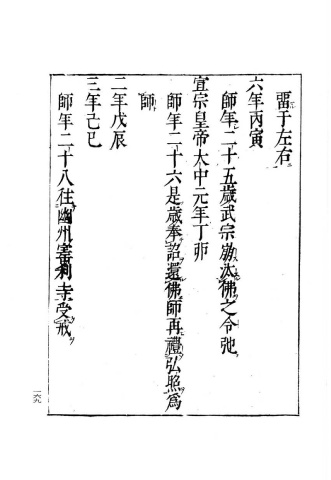 畱于左右
六年丙寅
師年二十五歲武宗勑汰佛之令弛
宣宗皇帝大中元年丁卯
師年二十六是歲奉詔還佛師再禮弘照爲
師
二年戊辰
三年己巳
師年二十八往幽州寶刹寺受戒
一六九